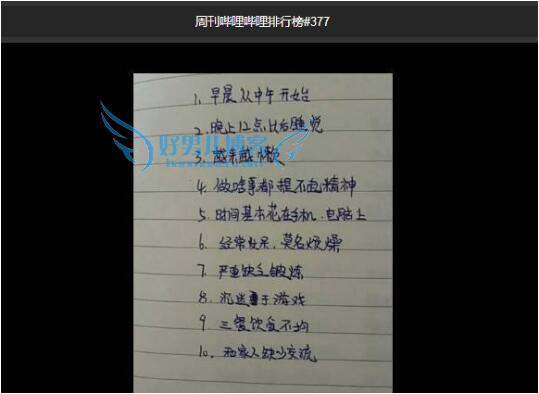 周刊哔哩哔哩排行榜#377
1、早晨从中午开始
2、晚上12点以后睡觉
好男儿博客
3、越来越懒
4、做啥事都提不起精神
5、时间基本花在手机、电脑上
6、经常发呆，莫名烦燥
7、严重缺乏锻炼
8、沉迷于游戏
9、三餐饮食不均
10、和家人缺少交流